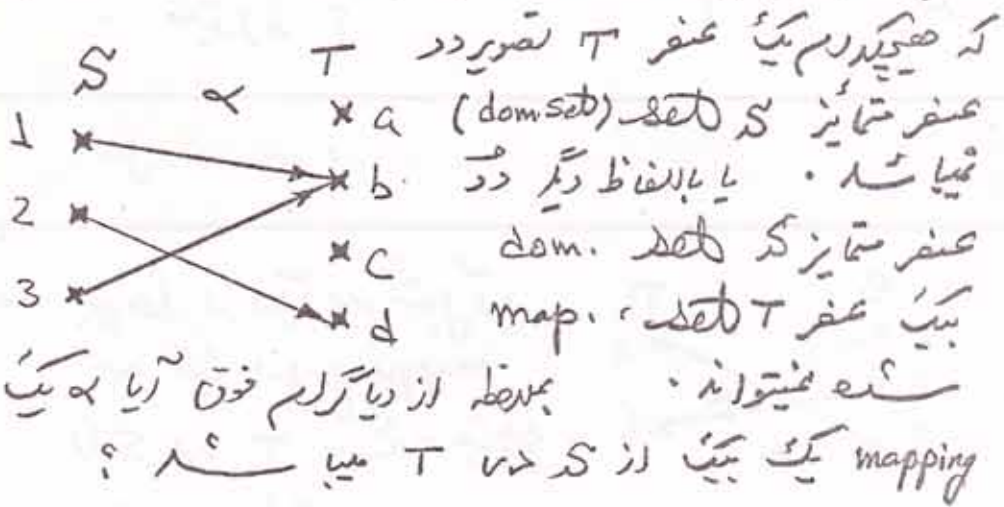 که هیچکدام یک عنصر T تصویر دو
S α T
عنصر متمایز S set (dom set)
1 2 3
a b c d
نمیباشد . یا بالفاظ دگر دو
عنصر متمایز S dom. set
بیک عنصر T set ، map.
شده نمیتواند . بملاحظه از دیاگرام فوق آیا α یک
mapping یک بیک از S در T میباشد ؟